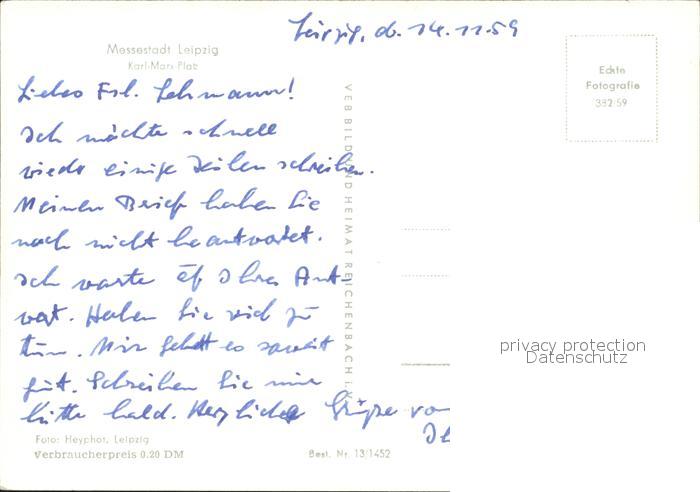 Leipzig, d. 14.11.59
Messestadt Leipzig
Karl-Marx-Platz
Echte
Fotografie
382/59
Liebes Frl. Lehmann!
Ich möchte schnell
wieder einige Zeilen schreiben.
Meinen Brief haben Sie
noch nicht beantwortet.
Ich warte auf Ihre Ant-
wort. Haben Sie viel zu
tun. Mir geht es soweit
gut. Schreiben Sie mir
bitte bald. Herzliche Grüße vo
VEB BILD UND HEIMAT REICHENBACH i. V.
privacy protection
Datenschutz
Foto: Heyphot, Leipzig
Verbraucherpreis 0.20 DM
Best. Nr. 13/1452